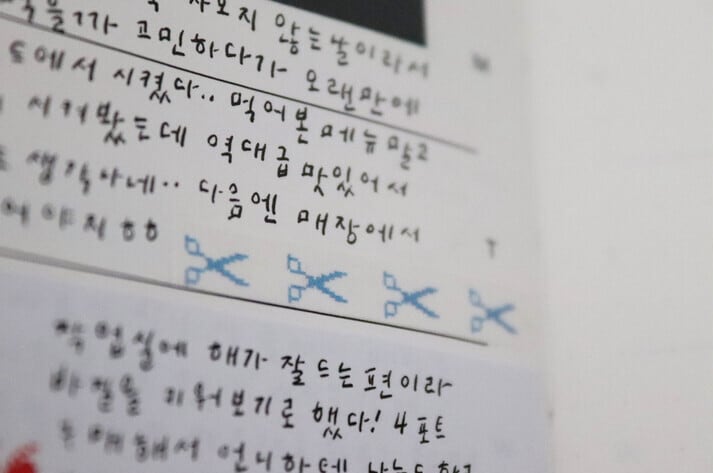 사오지 않는날이라서
먹을까 고민하다가 오랜만에
에서 시켰다.. 먹어본 메뉴 말고
시켜봤는데 역대급 맛있어서
생각나네.. 다음엔 매장에서
어야지 ㅎㅎ
작업실에 해가 잘 드는 편이라
바질을 키워보기로 했다! 4포트
해서 언니한테 나눔도 하고